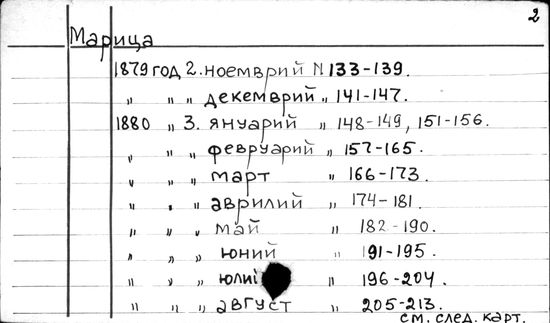 2
Марица
1879 год 2. ноемврий N 133-139.
" " " декемврий " 141-147.
1880 " 3. януарий " 148-149, 151-156.
" " " февруарий " 157-165.
" " " март " 166-173.
" " " аврилий " 174-181.
" " " май " 182-190.
" " " юний " 191-195.
" " " юлий " 196-204.
" " " август " 205-213.
см. след. карт.